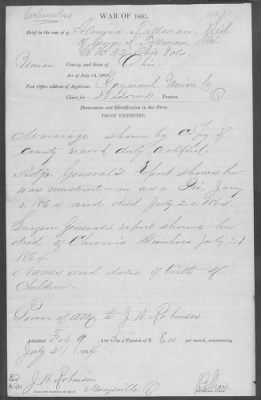 WAR OF 1861.
Brief in the case of
Union County, and State of Ohio
Act of July 14, 1862.
Post Office address of Applicant, Raymond Union Co
Claim for Widows Pension.
Declaration and Identification in due Form
PROOF EXHIBITED.
Marriage shown by Copy of
County record duly Certified.
Adjt General's Report shows he
was mustered in as a Pri. Jany
5, 1864 and died July 2 1864.
Surgeon Generals report shows he
died of Chronic Diarrhoea July 21
1864.
Names and dates of birth of
Children.
Power of atty to J. W. Robinson.
Admitted Feb 9 to a Pension of $8
July 21 1864
J. W. Robinson
Marysville O